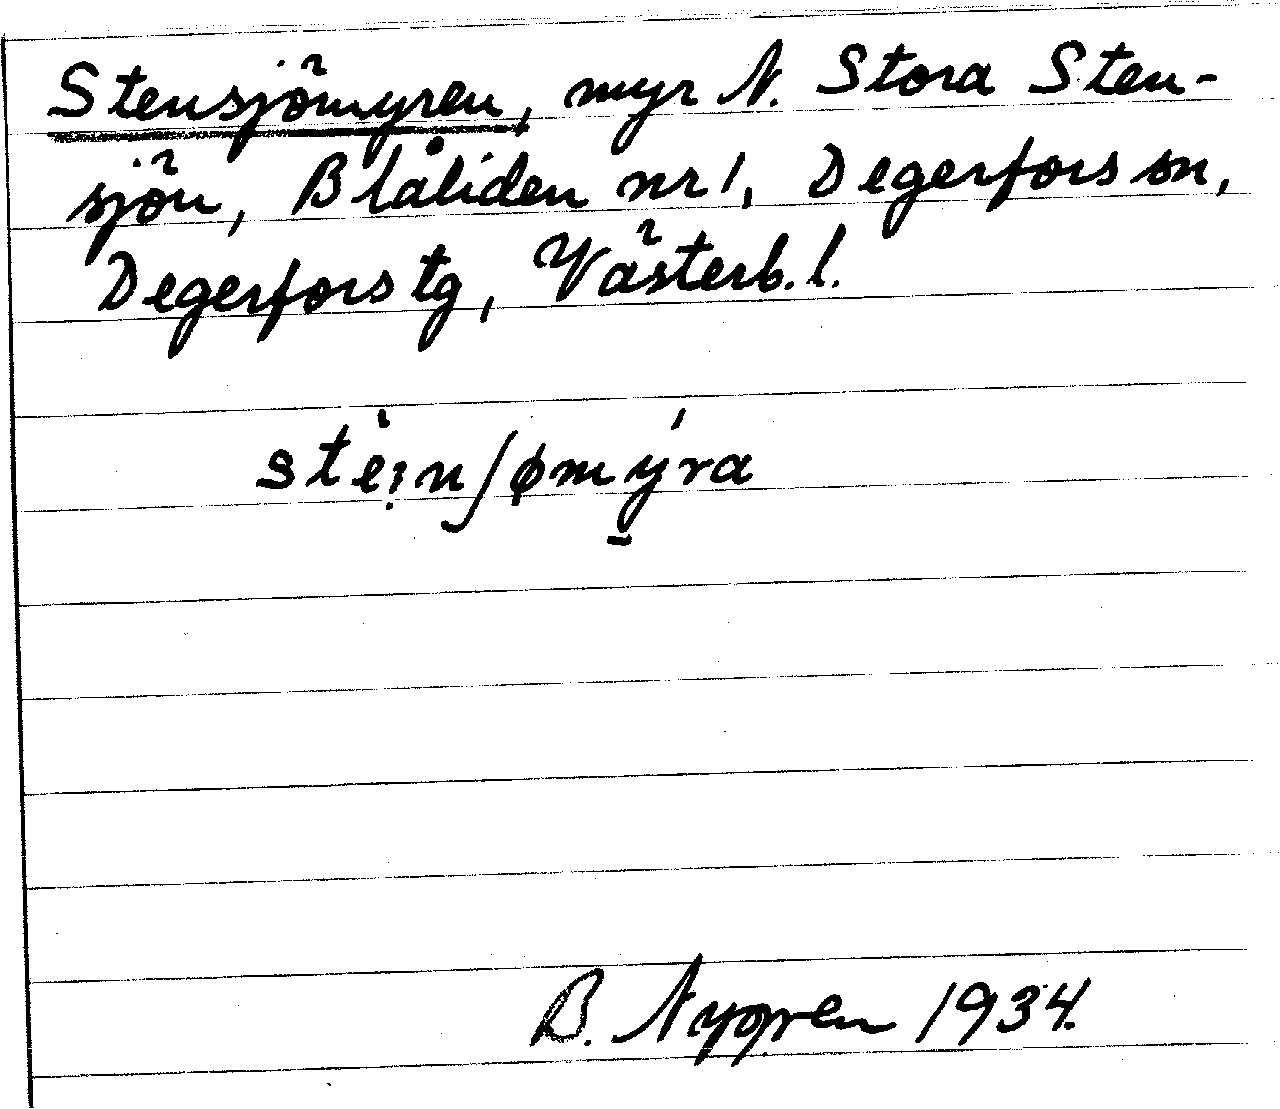 Stensjömyren, myr N. Stora Sten-
sjön, Blåliden nr 1, Degerfors sn,
Degerfors tg, Västerb. l.
stè:nʃømýra
B. Nygren 1934.